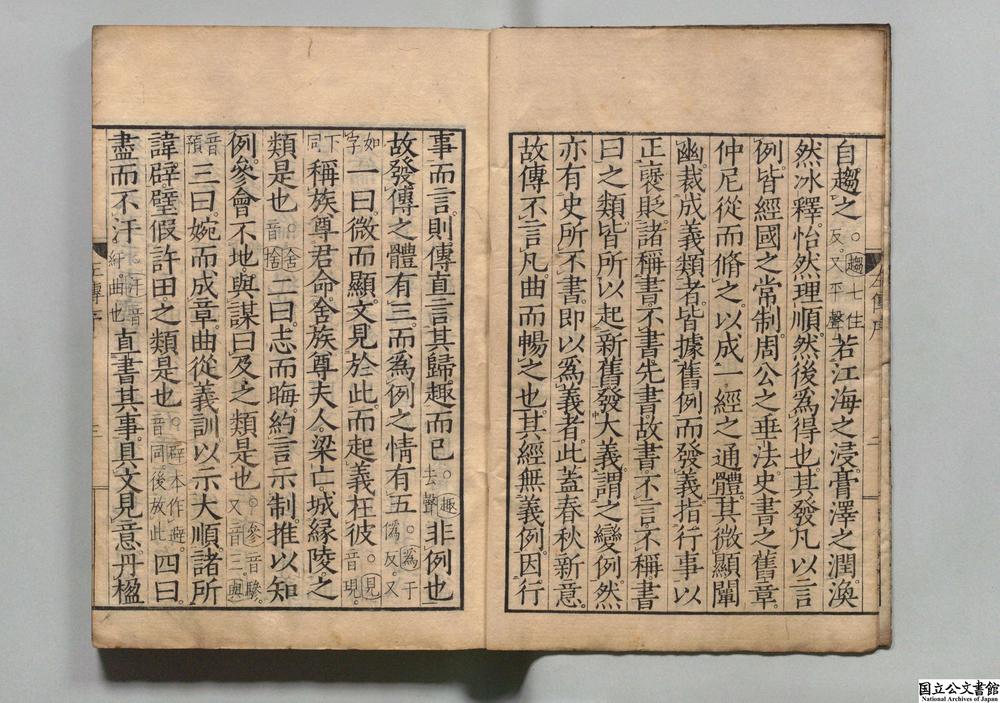 自趨之○趨七住反又平聲若江海之浸膏澤之潤渙
然冰釋怡然理順然後為得也其發凡以言
例皆經國之常制周公之垂法史書之舊章
仲尼從而脩之以成一經之通體其微顯闡
幽裁成義類者皆據舊例而發義指行事以
正襃貶諸稱書不書先書故書不言不稱書
曰之類皆所以起新舊發大義謂之變例然
亦有史所不書即以為義者此蓋春秋新意
故傳不言凡曲而暢之也其經無義例因行
事而言則傳直言其歸趣而已○趣去聲非例也
故發傳之體有三而為例之情有五○為于偽反又
如字下同一曰微而顯文見於此而起義在彼○見音現
稱族尊君命舍族尊夫人梁亡城緣陵之
類是也○舍音捨二曰志而晦約言示制推以知
例參會不地與謀曰及之類是也○參音驂又音三與
音預三曰婉而成章曲從義訓以示大順諸所
諱辟璧假許田之類是也○辟本作避音同後放此四曰
盡而不汙○汙音紆曲也直書其事具文見意丹楹
國立公文書館
National Archives of Japan